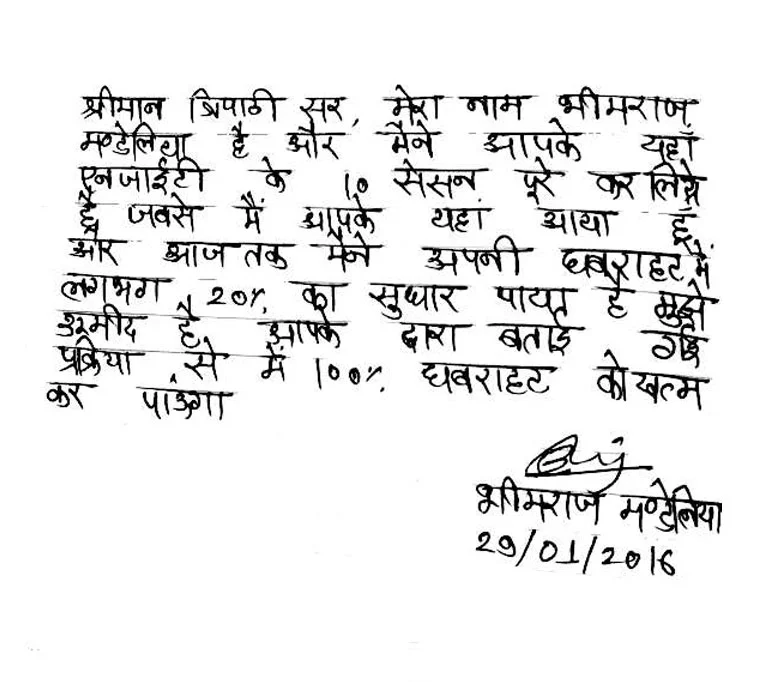 श्रीमान त्रिपाठी सर, मेरा नाम भीमराज
मण्डेलिया है और मैंने आपके यहाँ
एनजाईटी के 10 सेसन पूरे कर लिये
है जबसे मैं आपके यहां आया हूँ
और आज तक मैंने अपनी घबराहट में
लगभग 20% का सुधार पाया है मुझे
उम्मीद है आपके द्वारा बताई गई
प्रक्रिया से में 100% घबराहट को खत्म
कर पांउगा
भीमराज मण्डेलिया
29/01/2016